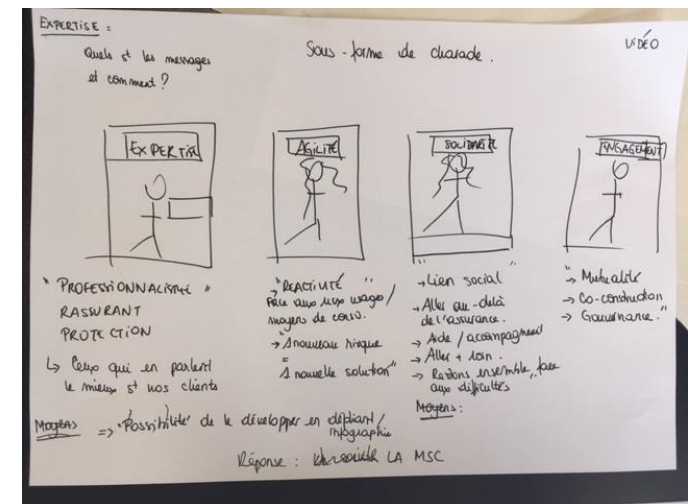 EXPERTISE :
Quels st les messages
et comment ?
Sous-forme de charade.
VIDÉO
EXPERTISE
"PROFESSIONNALISME"
RASSURANT
PROTECTION
↳ Ceux qui en parlent
le mieux st nos clients
AGILITÉ
→ "RÉACTIVITÉ"
face aux usages /
moyens de conso.
→ 1 nouveau risque
=
1 nouvelle solution"
SOLIDARITÉ
"
→ Lien social
→ Aller au-delà
de l'assurance.
→ Aide / accompagnement
→ Aller + loin.
→ Restons ensemble, face
aux difficultés"
Moyens :
ENGAGEMENT
"→ Mutualité
→ Co-construction
→ Gouvernance."
MOYENS => Possibilité de le développer en dépliant /
infographie
Réponse : LA MSC